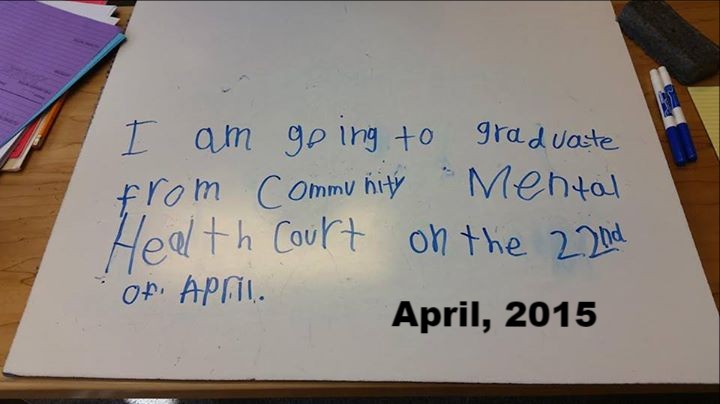 I am going to graduate
from Community Mental
Health Court on the 22nd
of April.
April, 2015